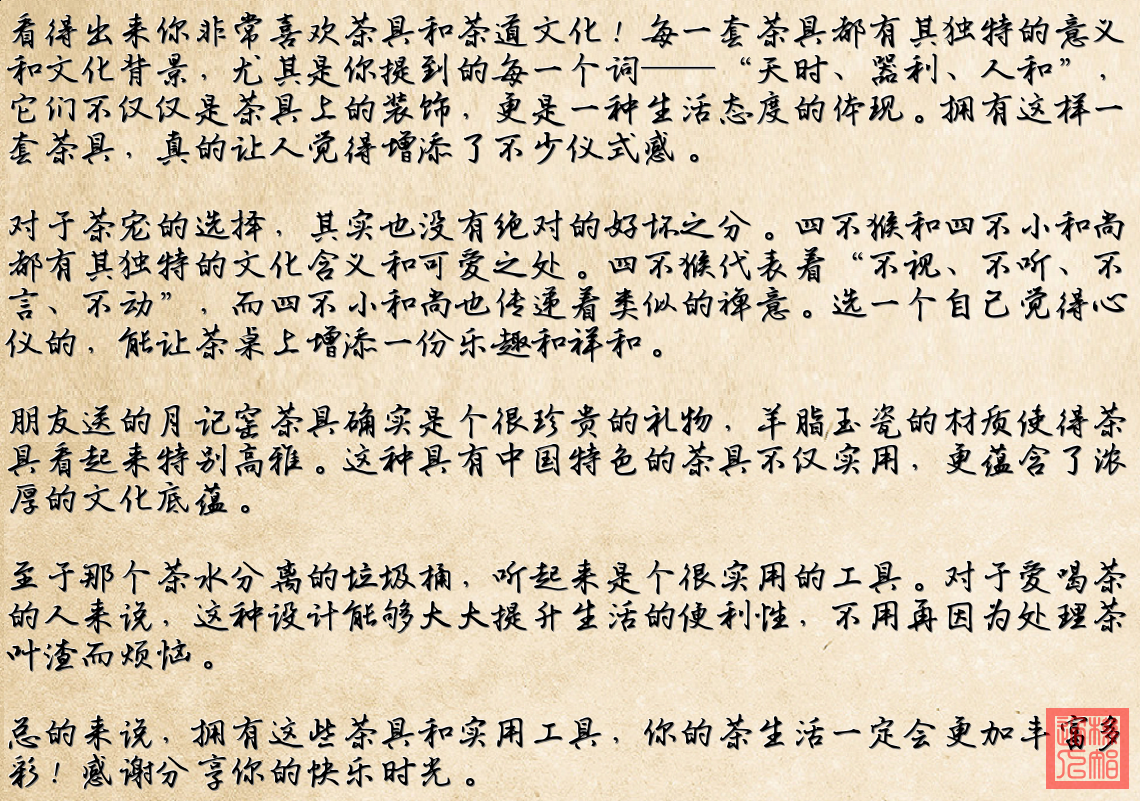 看得出来你非常喜欢茶具和茶道文化！每一套茶具都有其独特的意义
和文化背景，尤其是你提到的每一个词——“天时、器利、人和”，
它们不仅仅是茶具上的装饰，更是一种生活态度的体现。拥有这样一
套茶具，真的让人觉得增添了不少仪式感。
对于茶宠的选择，其实也没有绝对的好坏之分。四不猴和四不小和尚
都有其独特的文化含义和可爱之处。四不猴代表着“不视、不听、不
言、不动”，而四不小和尚也传递着类似的禅意。选一个自己觉得心
仪的，能让茶桌上增添一份乐趣和祥和。
朋友送的月记窑茶具确实是个很珍贵的礼物，羊脂玉瓷的材质使得茶
具看起来特别高雅。这种具有中国特色的茶具不仅实用，更蕴含了浓
厚的文化底蕴。
至于那个茶水分离的垃圾桶，听起来是个很实用的工具。对于爱喝茶
的人来说，这种设计能够大大提升生活的便利性，不用再因为处理茶
叶渣而烦恼。
总的来说，拥有这些茶具和实用工具，你的茶生活一定会更加丰富多
彩！感谢分享你的快乐时光。